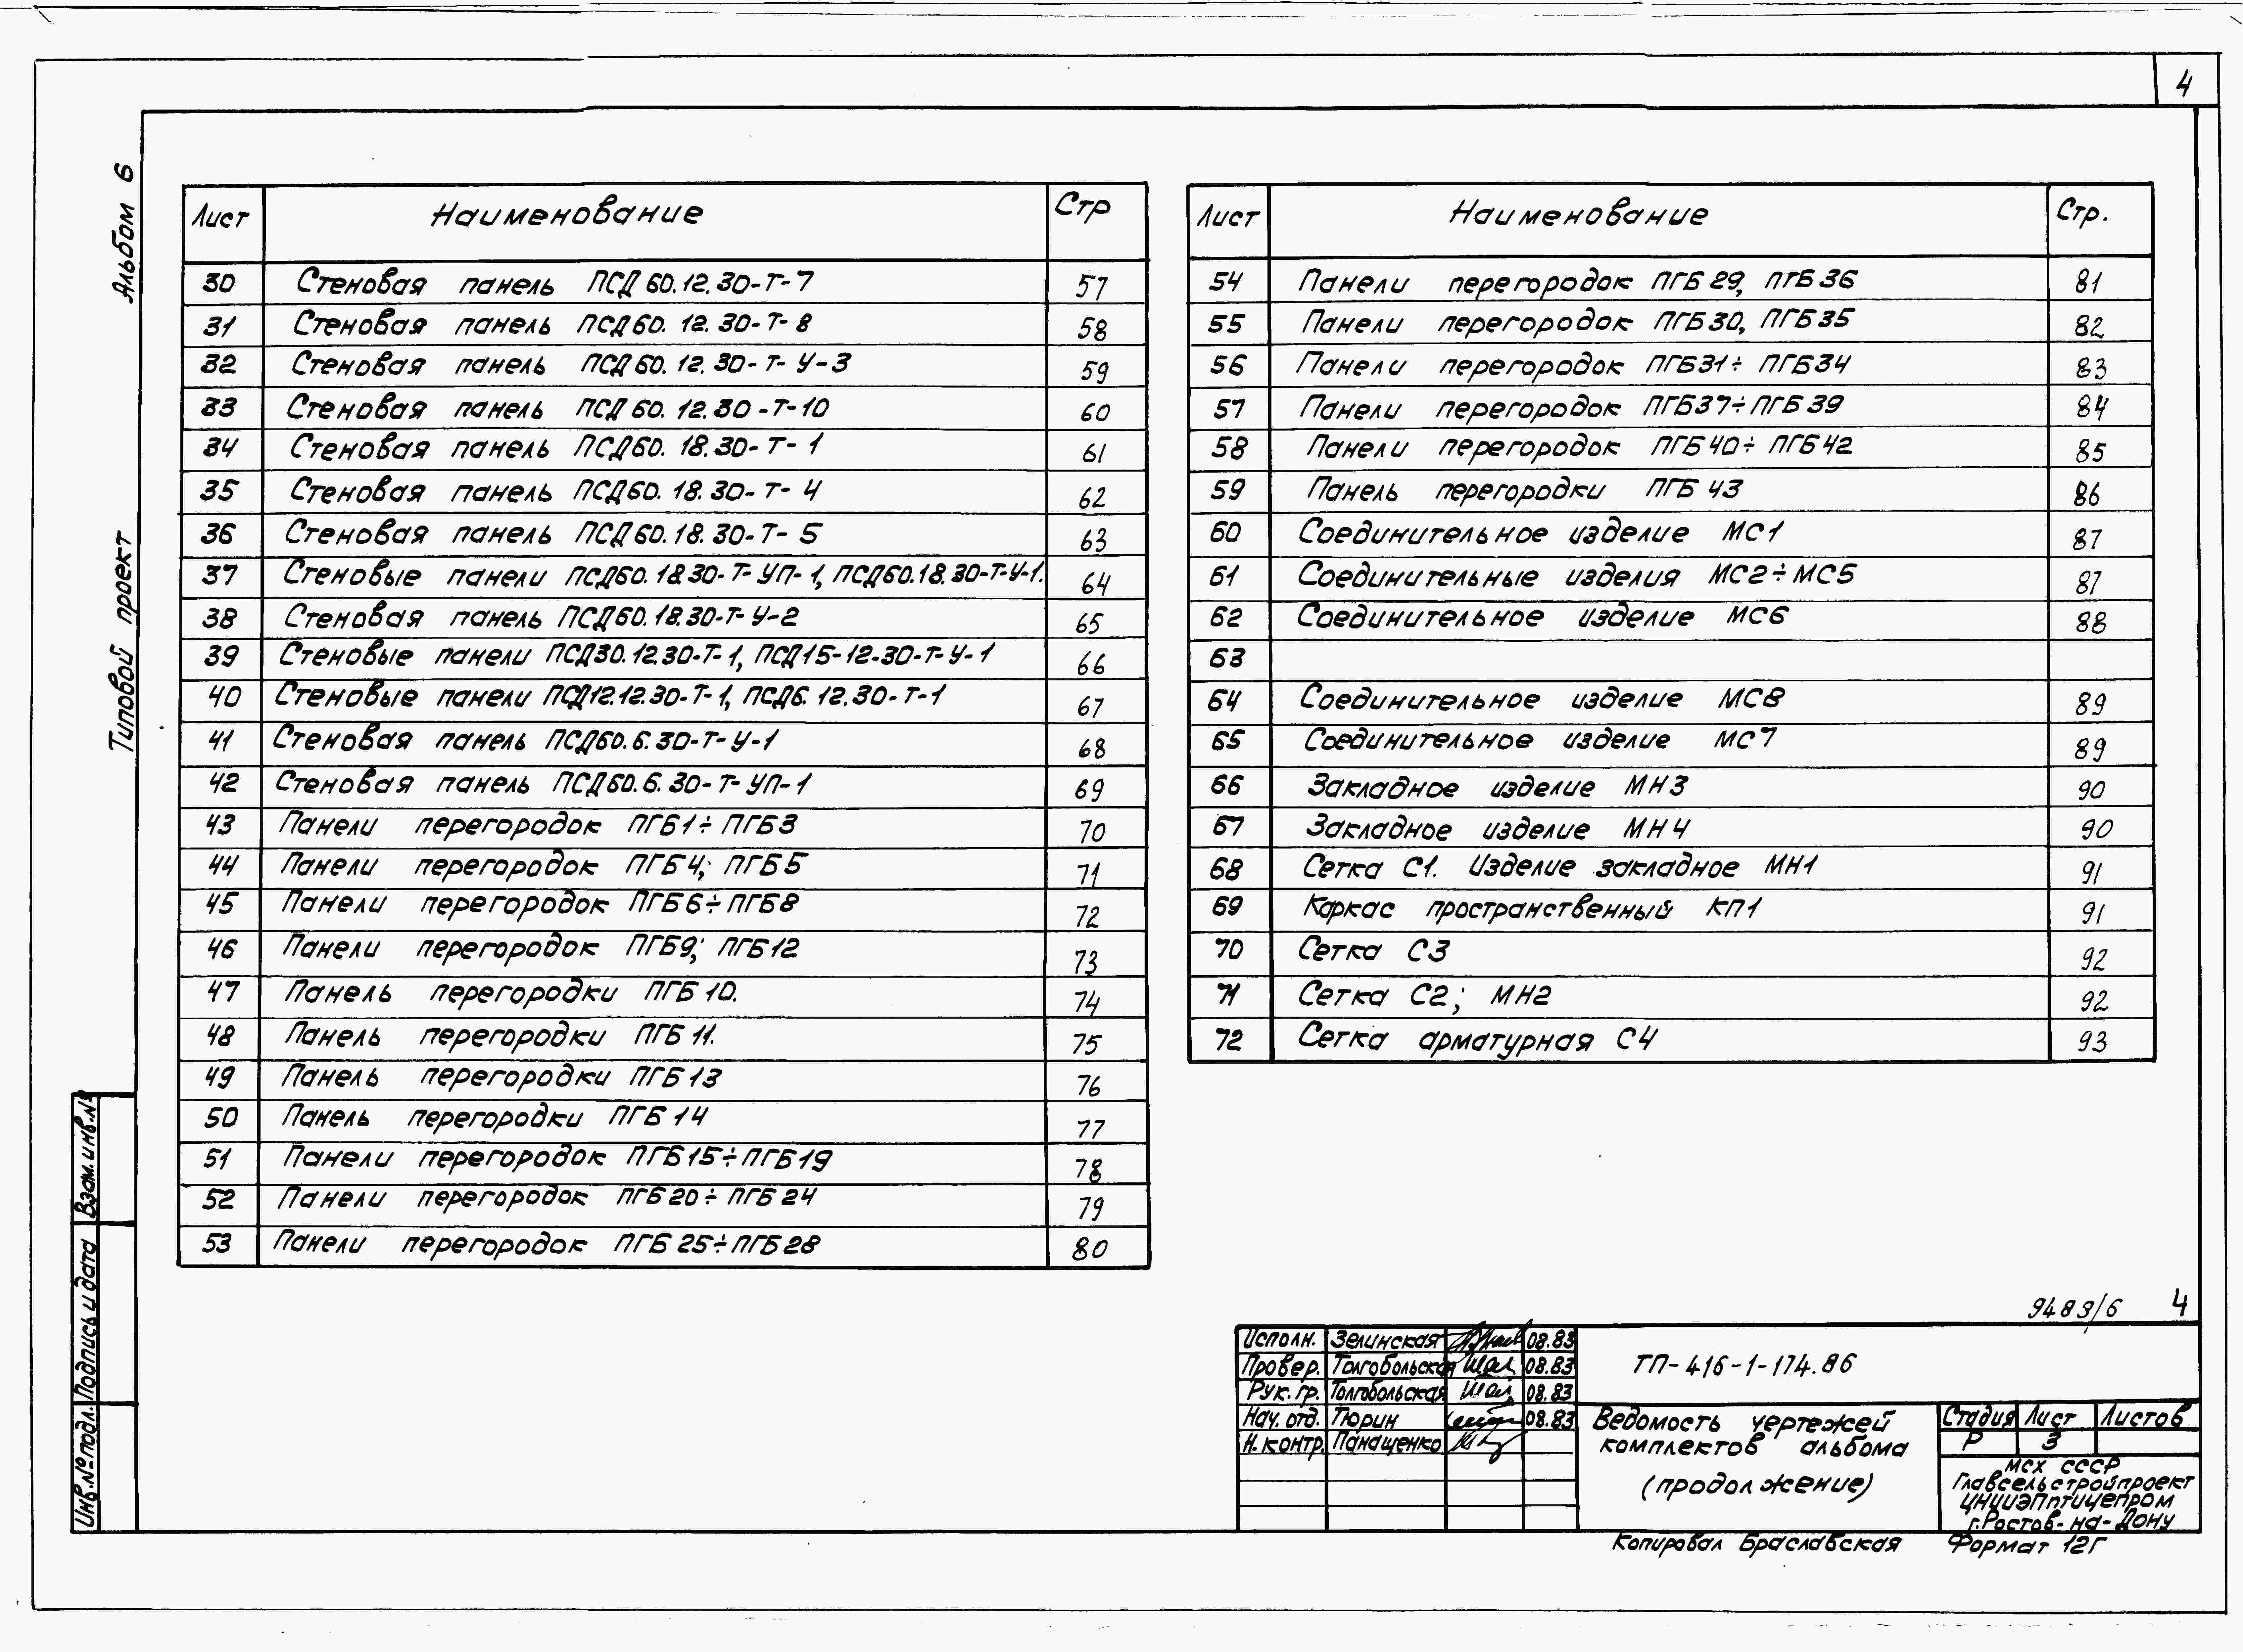 4
Альбом 6
Типовой проект
Лист Наименование Стр
30 Стеновая панель ПСД 60.12.30-Т-7 57
31 Стеновая панель ПСД60.12.30-Т-8 58
32 Стеновая панель ПСД 60.12.30-Т-У-3 59
33 Стеновая панель ПСД 60.12.30-Т-10 60
34 Стеновая панель ПСД60.18.30-Т-1 61
35 Стеновая панель ПСД60.18.30-Т-4 62
36 Стеновая панель ПСД60.18.30-Т-5 63
37 Стеновые панели ПСД60.18.30-Т-УП-1, ПСД60.18.30-Т-У-1. 64
38 Стеновая панель ПСД60.18.30-Т-У-2 65
39 Стеновые панели ПСД30.12.30-Т-1, ПСД15-12-30-Т-У-1 66
40 Стеновые панели ПСД12.12.30-Т-1, ПСД6.12.30-Т-1 67
41 Стеновая панель ПСД60.6.30-Т-У-1 68
42 Стеновая панель ПСД60.6.30-Т-УП-1 69
43 Панели перегородок ПГБ1÷ПГБ3 70
44 Панели перегородок ПГБ4; ПГБ5 71
45 Панели перегородок ПГБ6÷ПГБ8 72
46 Панели перегородок ПГБ9; ПГБ12 73
47 Панель перегородки ПГБ10. 74
48 Панель перегородки ПГБ11. 75
49 Панель перегородки ПГБ13 76
50 Панель перегородки ПГБ14 77
51 Панели перегородок ПГБ15÷ПГБ19 78
52 Панели перегородок ПГБ20÷ПГБ24 79
53 Панели перегородок ПГБ25÷ПГБ28 80
Лист Наименование Стр.
54 Панели перегородок ПГБ29, ПГБ36 81
55 Панели перегородок ПГБ30, ПГБ35 82
56 Панели перегородок ПГБ31÷ПГБ34 83
57 Панели перегородок ПГБ37÷ПГБ39 84
58 Панели перегородок ПГБ40÷ПГБ42 85
59 Панель перегородки ПГБ43 86
60 Соединительное изделие МС1 87
61 Соединительные изделия МС2÷МС5 87
62 Соединительное изделие МС6 88
63
64 Соединительное изделие МС8 89
65 Соединительное изделие МС7 89
66 Закладное изделие МН3 90
67 Закладное изделие МН4 90
68 Сетка С1. Изделие закладное МН1 91
69 Каркас пространственный КП1 91
70 Сетка С3 92
71 Сетка С2; МН2 92
72 Сетка арматурная С4 93
Взам.инв.№
Подпись и дата
Инв.№подл.
9483/6 4
Исполн. Зелинская 08.83
Провер. Толгобольская 08.83
Рук.гр. Толгобольская 08.83
Нач.отд. Тюрин 08.83
Н.контр. Панащенко
ТП-416-1-174.86
Ведомость чертежей
комплектов альбома
(продолжение)
Стадия Лист Листов
Р 3
МСХ СССР
Главсельстройпроект
ЦНИИЭПптицепром
г.Ростов-на-Дону
Копировал Браславская Формат 12Г